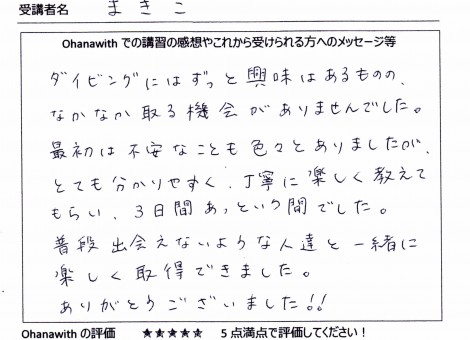 受講者名 まきこ
Ohanawith での講習の感想やこれから受けられる方へのメッセージ等
ダイビングにはずっと興味はあるものの、
なかなか取る機会がありませんでした。
最初は不安なことも色々とありましたが、
とても分かりやすく、丁寧に楽しく教えて
もらい、3日間あっという間でした。
普段出会えないような人達と一緒に
楽しく取得できました。
ありがとうございました!!
Ohanawith の評価 ★★★★★ 5点満点で評価してください!